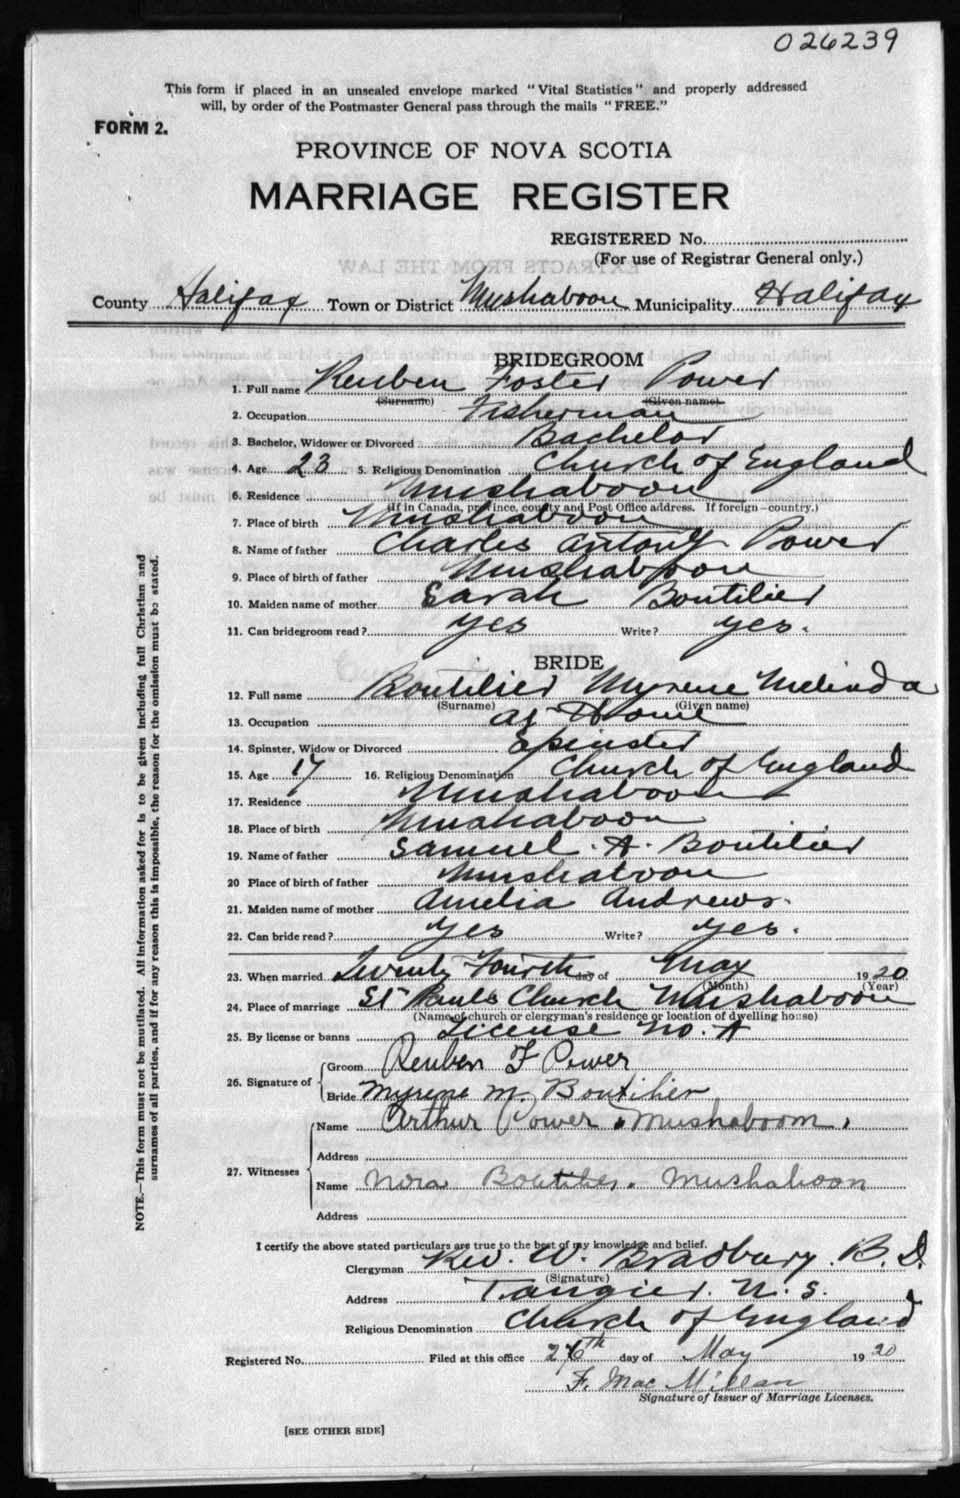 026239
This form if placed in an unsealed envelope marked "Vital Statistics" and properly addressed
will, by order of the Postmaster General pass through the mails "FREE."
FORM 2.
PROVINCE OF NOVA SCOTIA
MARRIAGE REGISTER
REGISTERED No.
(For use of Registrar General only.)
County Halifax Town or District Mushaboon Municipality Halifax
BRIDEGROOM
1. Full name Reuben Foster Power
(Surname) (Given name)
2. Occupation Fisherman
3. Bachelor, Widower or Divorced Bachelor
4. Age 23 5. Religious Denomination Church of England
6. Residence Mushaboon
(If in Canada, province, county and Post Office address. If foreign—country.)
7. Place of birth Mushaboon
8. Name of father Charles Antony Power
9. Place of birth of father Mushaboon
10. Maiden name of mother Sarah Boutilier
11. Can bridegroom read? Yes Write? Yes.
BRIDE
12. Full name Boutilier Myrene Melinda
(Surname) (Given name)
13. Occupation at Home
14. Spinster, Widow or Divorced Spinster
15. Age 17 16. Religious Denomination Church of England
17. Residence Mushaboon
18. Place of birth Mushaboon
19. Name of father Samuel. A. Boutilier
20 Place of birth of father Mushaboon
21. Maiden name of mother Amelia Andrews.
22. Can bride read? Yes Write? Yes.
23. When married Twenty Fourth day of May 1920
(Month) (Year)
24. Place of marriage St Pauls Church Mushaboon
(Name of church or clergyman's residence or location of dwelling house)
25. By license or banns License No. A
26. Signature of Groom Reuben F Power
Bride Myrene M. Boutilier
27. Witnesses Name Arthur Power. Mushaboom.
Address
Name Nora Boutilier. Mushaboon
Address
I certify the above stated particulars are true to the best of my knowledge and belief.
Clergyman Rev. W. Bradbury. B.D.
(Signature)
Address Tangier. N.S.
Religious Denomination Church of England
Registered No. Filed at this office 26th day of May 1920
F. Mac Millan
Signature of Issuer of Marriage Licenses.
[SEE OTHER SIDE]
NOTE.—This form must not be mutilated. All information asked for is to be given including full Christian and
surnames of all parties, and if for any reason this is impossible, the reason for the omission must be stated.